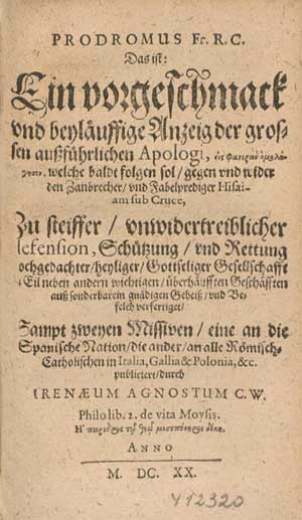 PRODROMUS Fr. R.C.
Das ist:
Ein vorgeschmack
vnd beyläuffige Anzeig der gros-
sen außführlichen Apologi,
welche baldt folgen sol / gegen vnd wider
den Zanbrecher / vnd Fabelprediger Hisai-
am sub Cruce,
Zu steiffer / vnwidertreiblicher
efension, Schützung / vnd Rettung
ochgedachter / heyliger / Gottseliger Gesellschafft
Eil neben andern wichtigen / überhäufften Geschäfften
auß sonderbarem gnädigen Geheiß / vnd Be-
felch verfertiget /
Sampt zweyen Missiven / eine an die
Spanische Nation / die ander / an alle Römisch-
Catholischen in Italia, Gallia & Polonia, &c.
publiciert / durch
IRENÆUM AGNOSTUM C. W.
Philo lib. 2. de vita Moysis.
ANNO
M. DC. XX.
412320